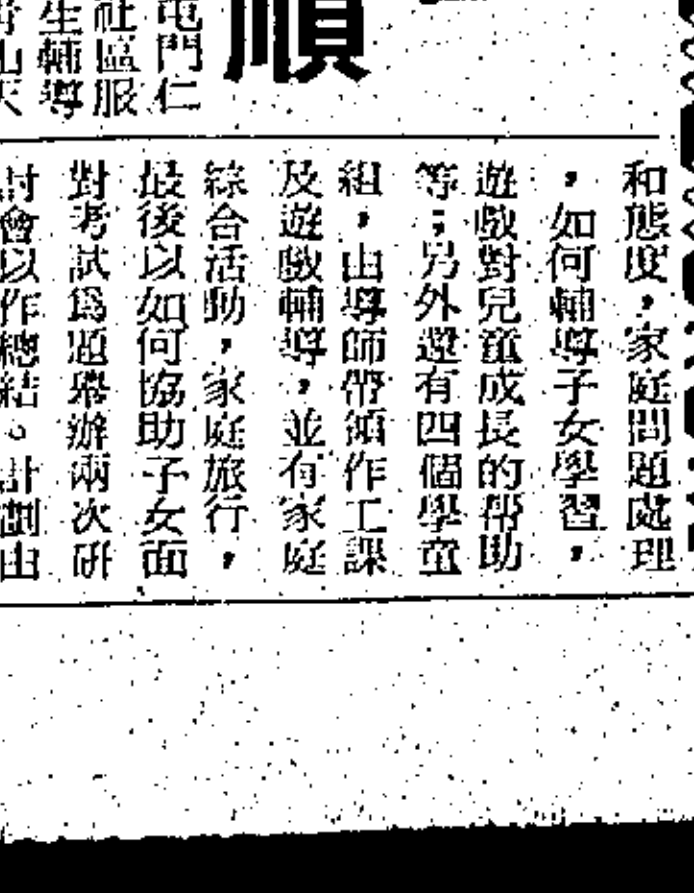 順
屯門仁
社區服
生輔導
青山天
和態度，家庭問題處理
，如何輔導子女學習，
遊戲對兒童成長的幫助
等；另外還有四個學童
組，由導師帶領作工課
及遊戲輔導，並有家庭
綜合活動，家庭旅行，
最後以如何協助子女面
對考試爲題舉辦兩次研
討會以作總結。計劃由